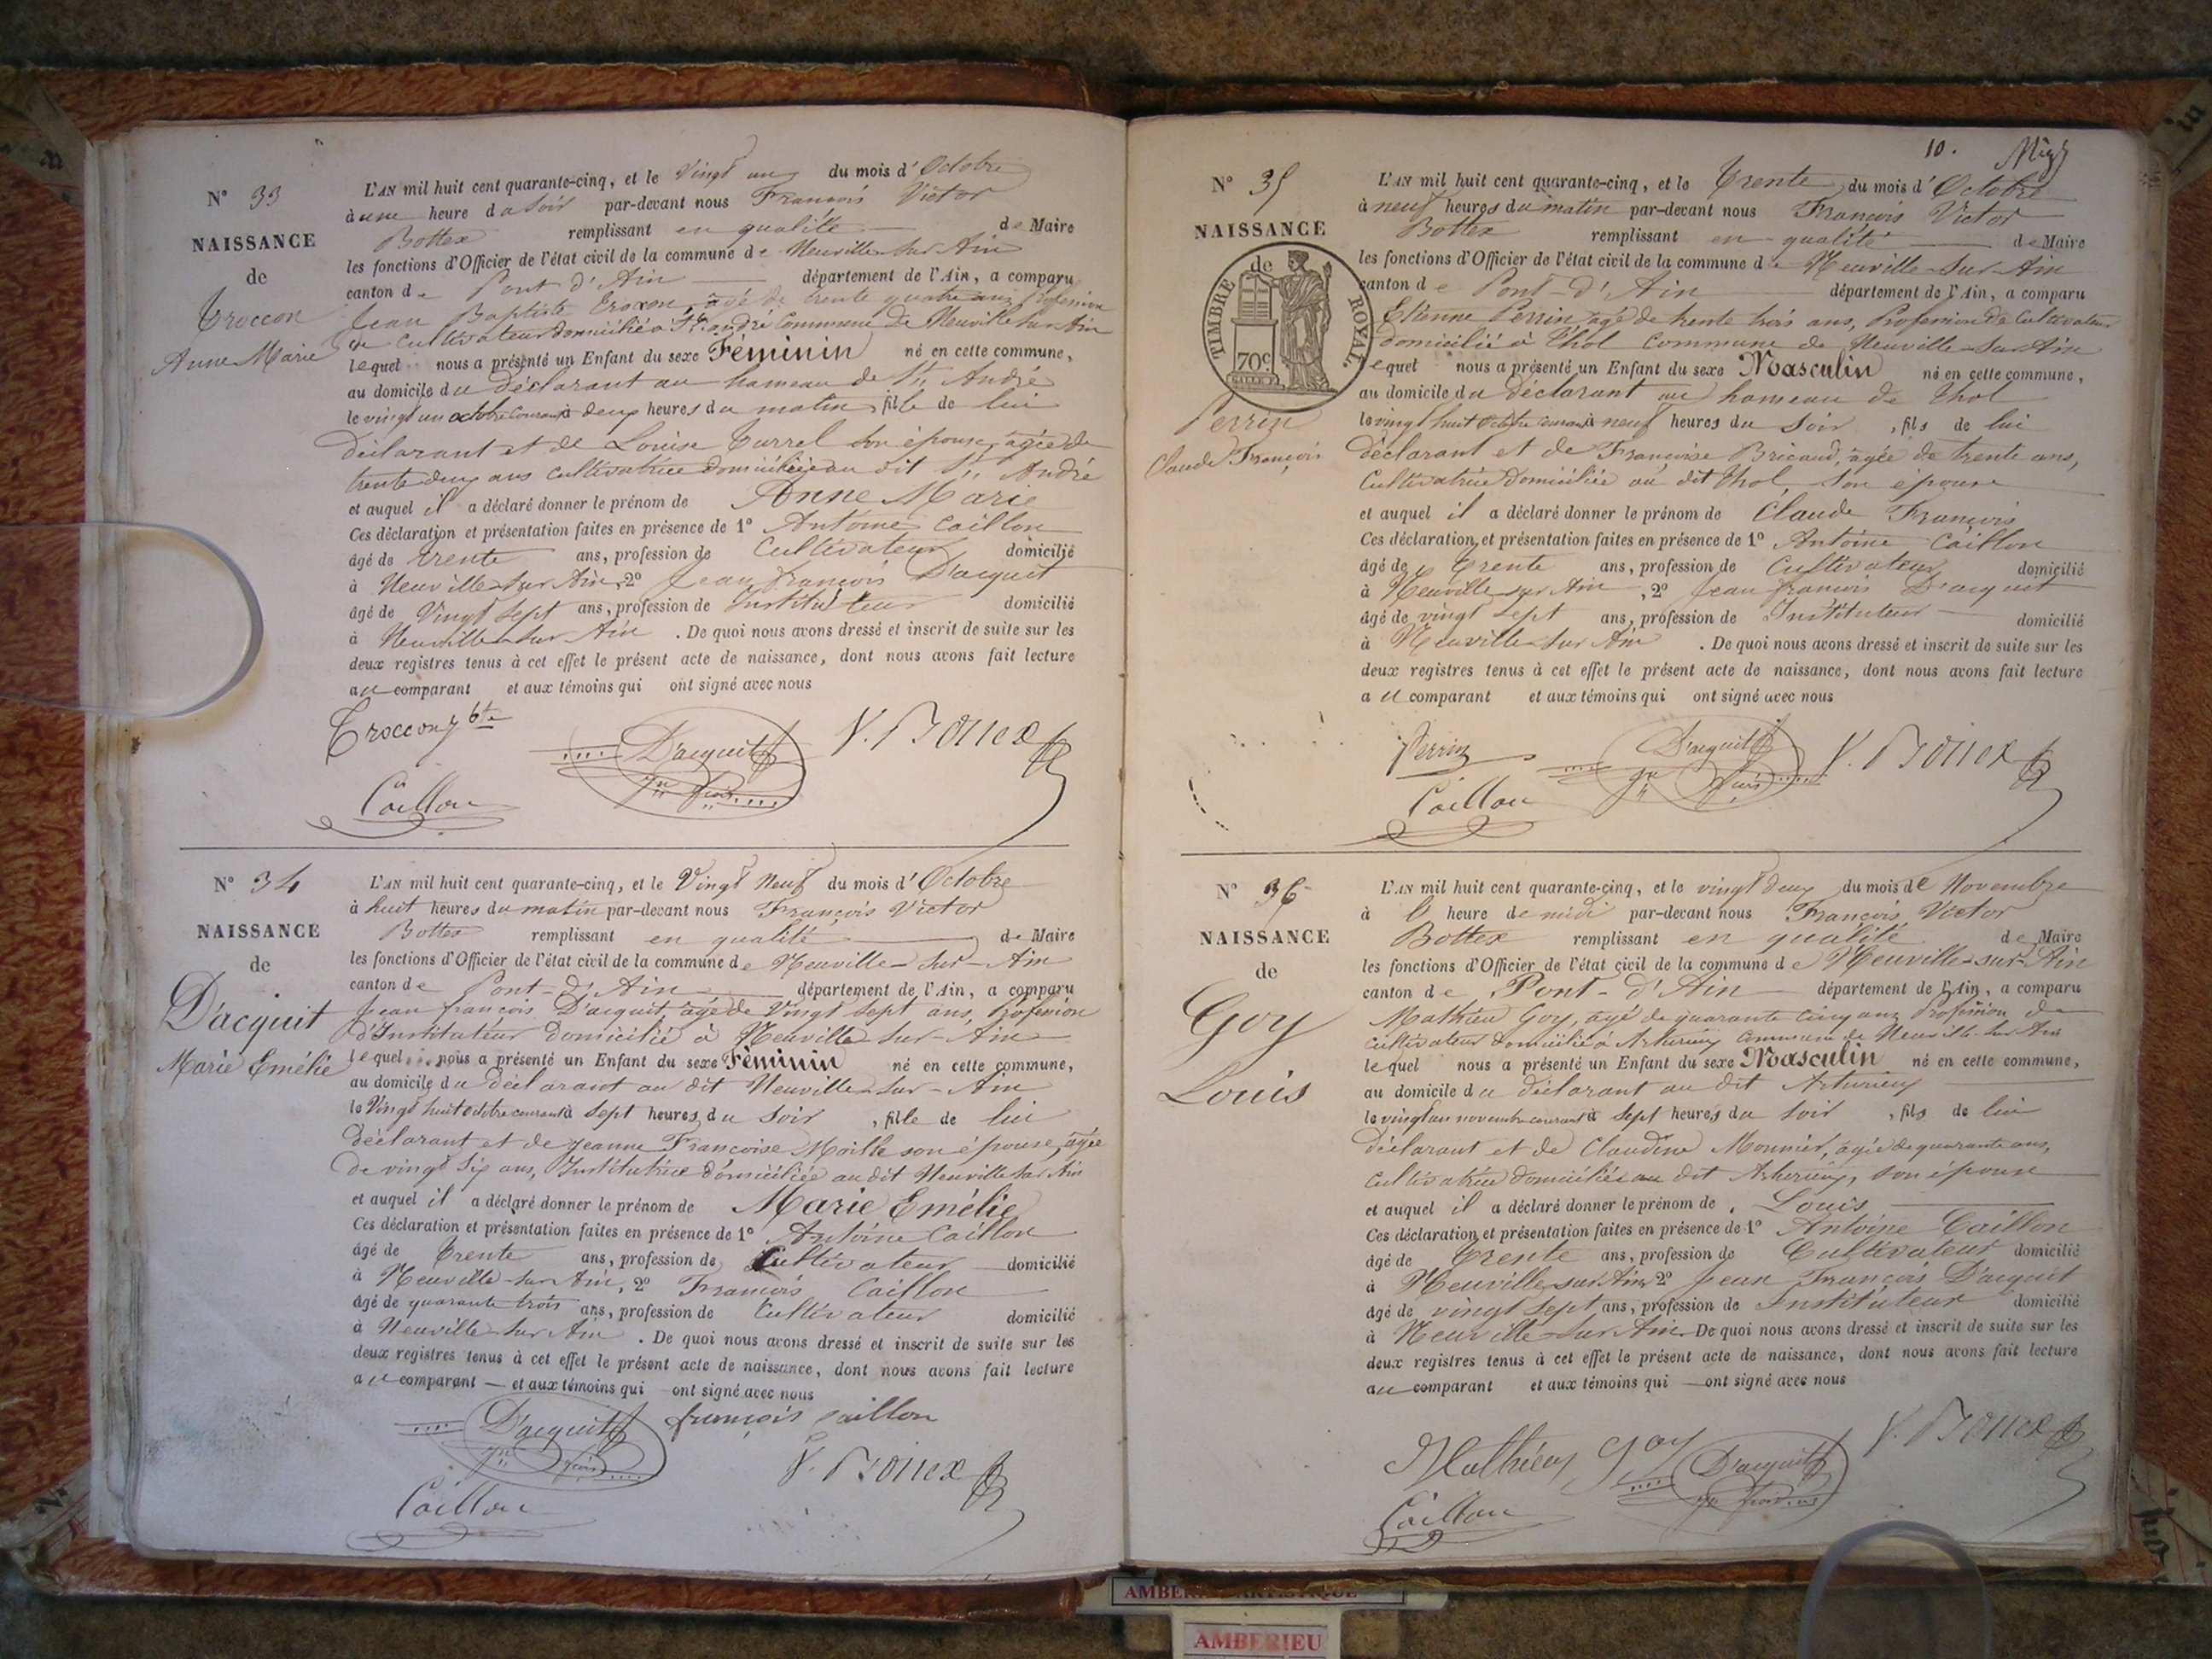 N° 33
NAISSANCE
de
Troccon
Anne Marie
L'AN mil huit cent quarante-cinq, et le Vingt un du mois d'Octobre
à une heure du soir par-devant nous François Victor
Bottex remplissant en qualité de Maire
les fonctions d'Officier de l'état civil de la commune de Neuville sur Ain
canton de Pont d'Ain département de l'Ain, a comparu
Jean Baptiste Troccon, âgé de trente quatre ans Profession
de Cultivateur domicilié à St. André Commune de Neuville sur Ain
lequel nous a présenté un Enfant du sexe Féminin né en cette commune,
au domicile du Déclarant au hameau de St. André
le vingt un octobre courant à deux heures du matin, fille de lui
Déclarant et de Louise Turrel son épouse, âgée de
trente deux ans cultivatrice domiciliée au dit St. André
et auquel il a déclaré donner le prénom de Anne Marie
Ces déclaration et présentation faites en présence de 1° Antoine Caillon
âgé de trente ans, profession de Cultivateur domicilié
à Neuville sur Ain, 2° Jean françois D'acquit
âgé de Vingt Sept ans, profession de Instituteur domicilié
à Neuville sur Ain. De quoi nous avons dressé et inscrit de suite sur les
deux registres tenus à cet effet le présent acte de naissance, dont nous avons fait lecture
au comparant et aux témoins qui ont signé avec nous
Troccon J bte
D'acquit
Jn fois
V. Bottex
Caillon
N° 34
NAISSANCE
de
D'acquit
Marie Emélie
L'AN mil huit cent quarante-cinq, et le Vingt Neuf du mois d'Octobre
à huit heures du matin par-devant nous François Victor
Bottex remplissant en qualité de Maire
les fonctions d'Officier de l'état civil de la commune de Neuville-sur-Ain
canton de Pont-d'Ain département de l'Ain, a comparu
Jean françois D'acquit, âgé de Vingt Sept ans, Profession
d'Instituteur domicilié à Neuville sur-Ain
lequel nous a présenté un Enfant du sexe Féminin né en cette commune,
au domicile du Déclarant au dit Neuville-sur-Ain
le Vingt huit octobre courant à sept heures du soir, fille de lui
Déclarant et de Jeanne Françoise Moille son épouse, âgée
de vingt six ans, Institutrice domiciliée au dit Neuville sur Ain
et auquel il a déclaré donner le prénom de Marie Emélie
Ces déclaration et présentation faites en présence de 1° Antoine Caillon
âgé de trente ans, profession de Cultivateur domicilié
à Neuville-sur Ain, 2° François Caillon
âgé de quarante trois ans, profession de Cultivateur domicilié
à Neuville sur Ain. De quoi nous avons dressé et inscrit de suite sur les
deux registres tenus à cet effet le présent acte de naissance, dont nous avons fait lecture
au comparant et aux témoins qui ont signé avec nous
D'acquit
Jn fois
françois caillon
V. Bottex
Caillon
10.
N° 35
NAISSANCE
de
TIMBRE ROYAL
70c
Perrin
Claude François
L'AN mil huit cent quarante-cinq, et le Trente du mois d'Octobre
à neuf heures du matin par-devant nous François Victor
Bottex remplissant en qualité de Maire
les fonctions d'Officier de l'état civil de la commune de Neuville-sur-Ain
canton de Pont-d'Ain département de l'Ain, a comparu
Etienne Perrin âgé de trente trois ans, Profession de Cultivateur
domicilié à Thol Commune de Neuville-sur-Ain
lequel nous a présenté un Enfant du sexe Masculin né en cette commune,
au domicile du Déclarant au hameau de Thol
le vingt huit octobre courant à neuf heures du soir, fils de lui
Déclarant et de Françoise Bricaud, âgée de trente ans,
Cultivatrice domiciliée au dit Thol, son épouse
et auquel il a déclaré donner le prénom de Claude François
Ces déclaration et présentation faites en présence de 1° Antoine Caillon
âgé de trente ans, profession de Cultivateur domicilié
à Neuville sur Ain, 2° Jean francois D'acquit
âgé de vingt sept ans, profession de Instituteur domicilié
à Neuville sur Ain. De quoi nous avons dressé et inscrit de suite sur les
deux registres tenus à cet effet le présent acte de naissance, dont nous avons fait lecture
au comparant et aux témoins qui ont signé avec nous
Perrin
D'acquit
Jn fois
V. Bottex
Caillon
N° 36
NAISSANCE
de
Goy
Louis
L'AN mil huit cent quarante-cinq, et le vingt deux du mois de Novembre
à l heure de midi par-devant nous François Victor
Bottex remplissant en qualité de Maire
les fonctions d'Officier de l'état civil de la commune de Neuville-sur-Ain
canton de Pont-d'Ain département de l'Ain, a comparu
Mathieu Goy, âgé de quarante cinq ans Profession de
cultivateur domicilié à Arturieux Commune de Neuville-sur-Ain
lequel nous a présenté un Enfant du sexe Masculin né en cette commune,
au domicile du déclarant au dit Arturieux
le vingt un novembre courant à sept heures du soir, fils de lui
Déclarant et de Claudine Monnier, âgée de quarante ans,
cultivatrice domiciliée au dit Arturieux, son épouse
et auquel il a déclaré donner le prénom de Louis
Ces déclaration et présentation faites en présence de 1° Antoine Caillon
âgé de trente ans, profession de Cultivateur domicilié
à Neuville sur Ain, 2° Jean François D'acquit
âgé de vingt sept ans, profession de Instituteur domicilié
à Neuville-sur-Ain. De quoi nous avons dressé et inscrit de suite sur les
deux registres tenus à cet effet le présent acte de naissance, dont nous avons fait lecture
au comparant et aux témoins qui ont signé avec nous
Mathieu Goy
D'acquit
Jn fois
V. Bottex
Caillon
AMBERIEU